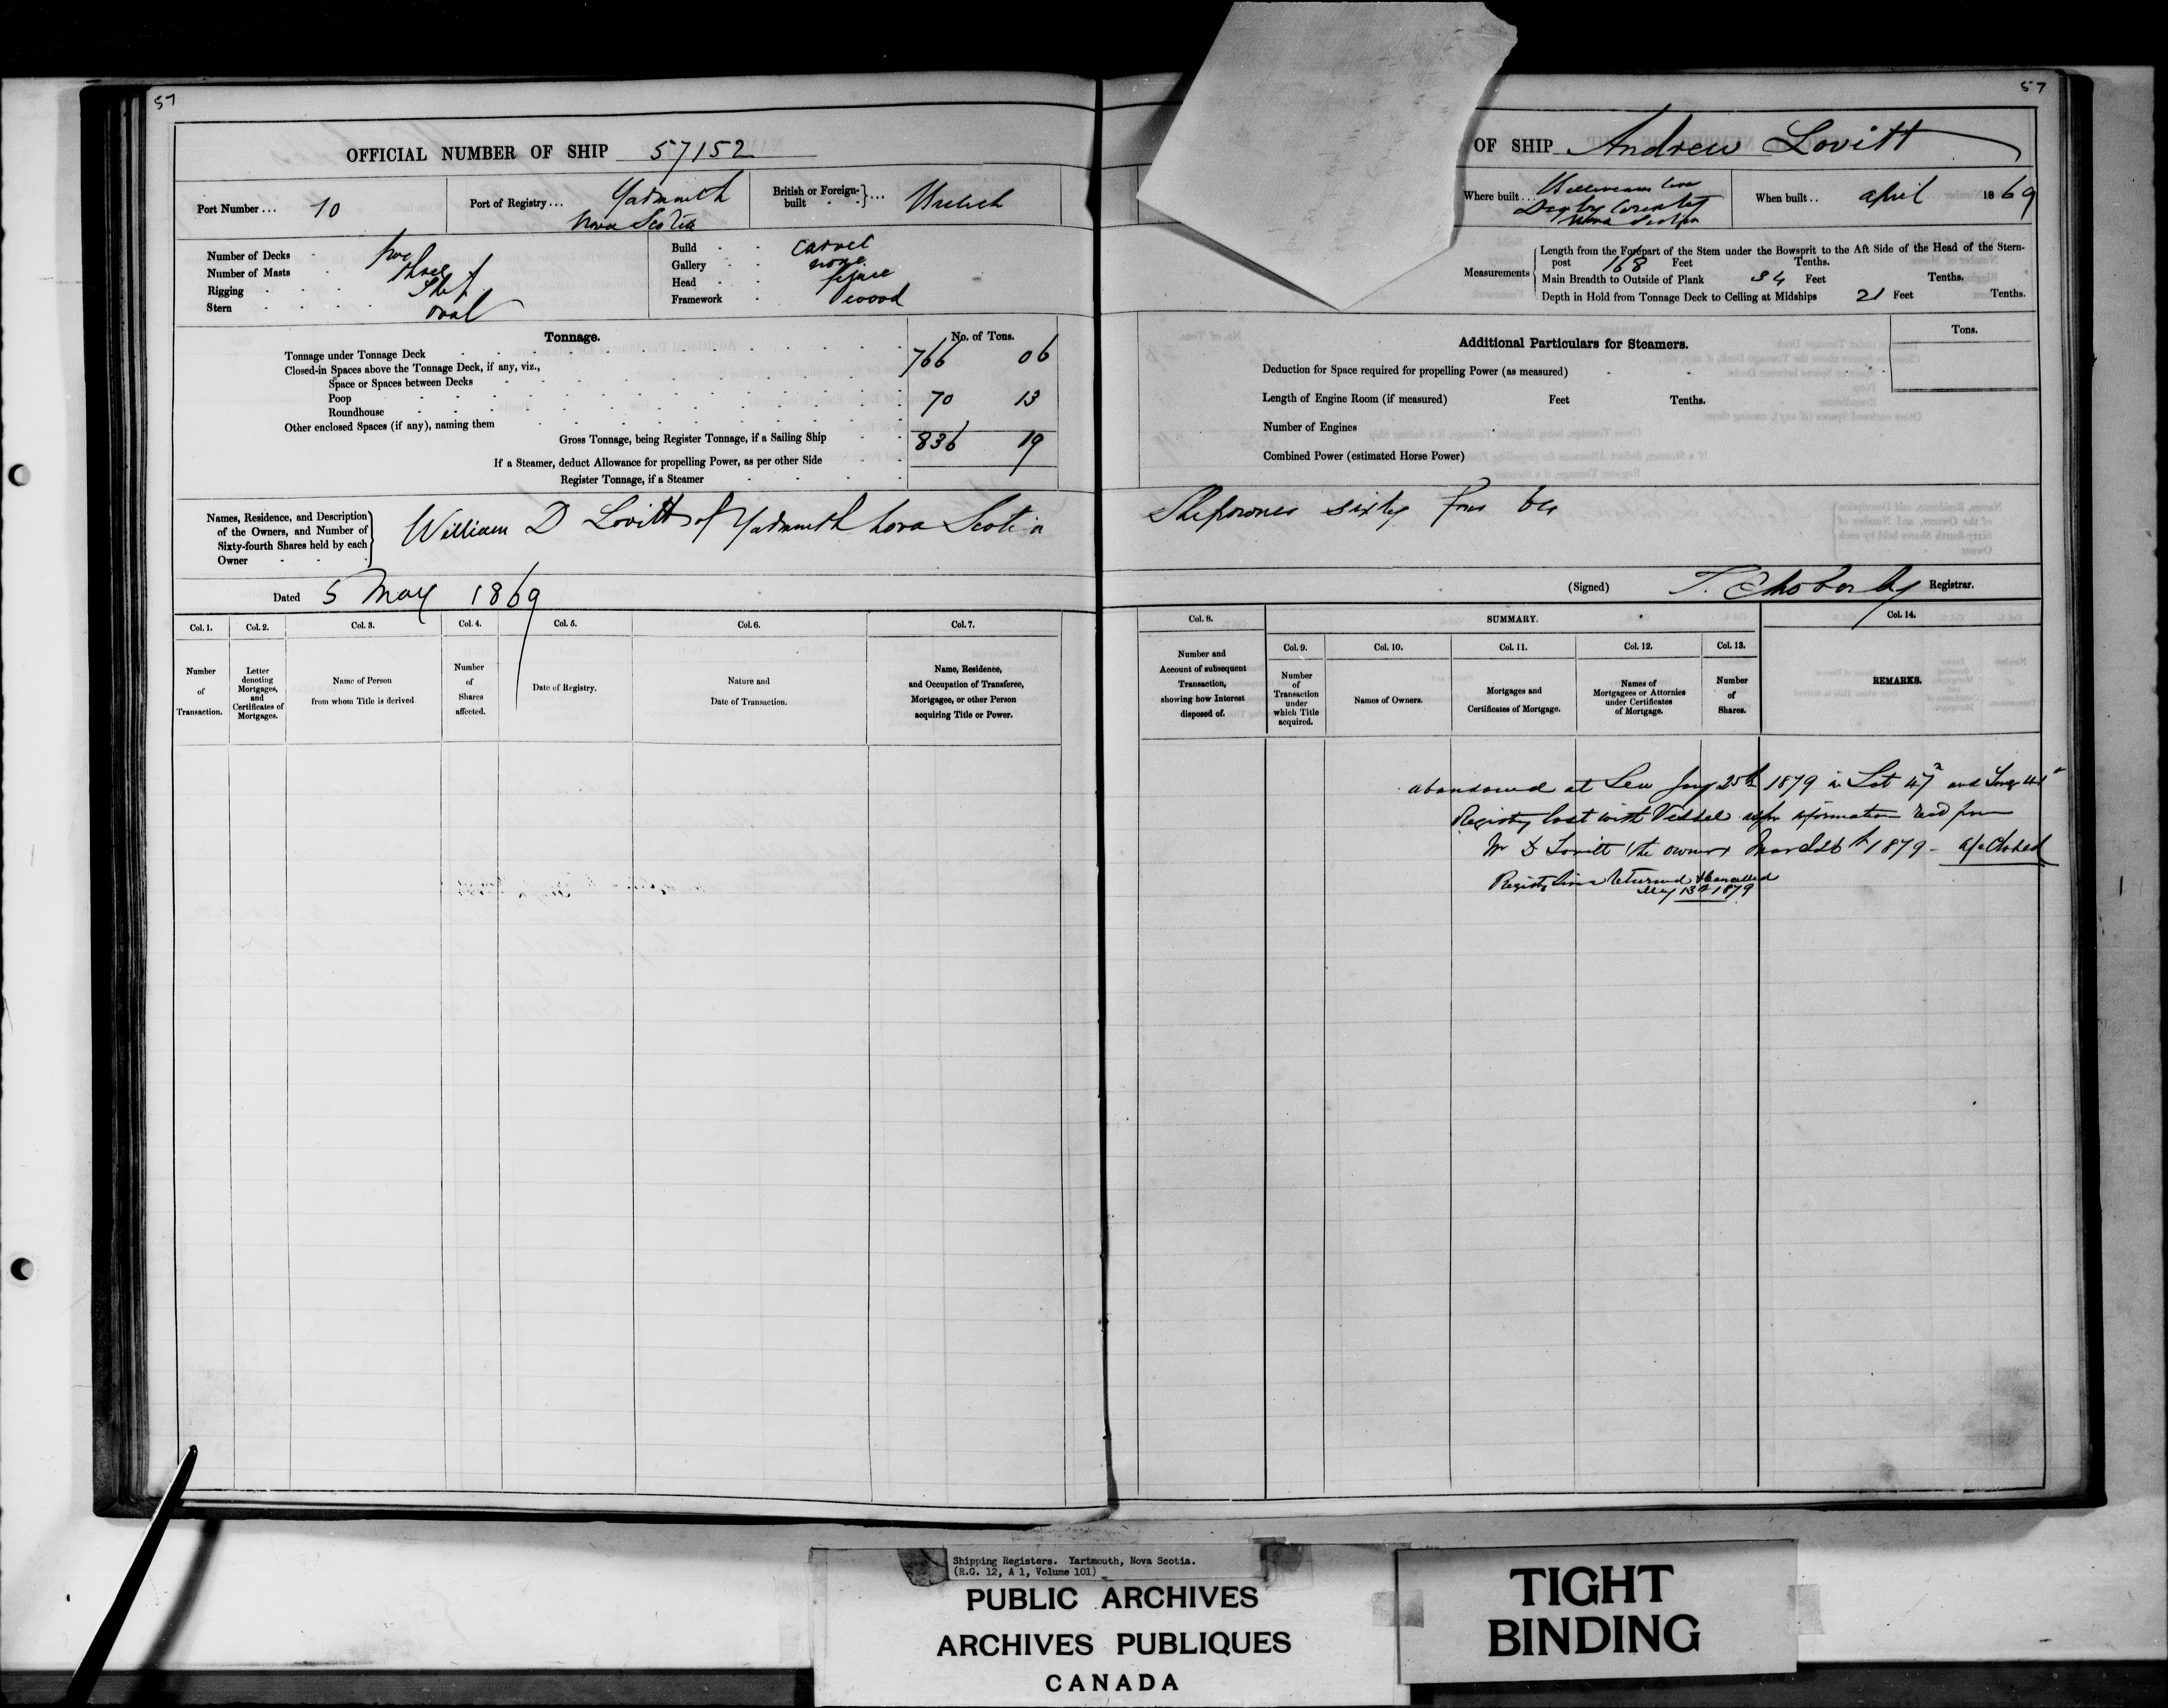 57
OFFICIAL NUMBER OF SHIP 57152
Port Number... 10
Port of Registry... Yarmouth
Nova Scotia
British or Foreign-built ... British
Number of Decks - two
Number of Masts - three
Rigging - Ship
Stern - oval
Build - carvel
Gallery - none
Head - figure
Framework - wood
Tonnage.
No. of Tons.
Tonnage under Tonnage Deck 766 06
Closed-in Spaces above the Tonnage Deck, if any, viz.,
Space or Spaces between Decks
Poop 70 13
Roundhouse
Other enclosed Spaces (if any), naming them
Gross Tonnage, being Register Tonnage, if a Sailing Ship 836 19
If a Steamer, deduct Allowance for propelling Power, as per other Side
Register Tonnage, if a Steamer
Names, Residence, and Description
of the Owners, and Number of
Sixty-fourth Shares held by each
Owner
William D Lovitt of Yarmouth Nova Scotia
Dated 5 May 1869
Col. 1. Col. 2. Col. 3. Col. 4. Col. 5. Col. 6. Col. 7.
Number
of
Transaction.
Letter
denoting
Mortgages,
and
Certificates of
Mortgages.
Name of Person
from whom Title is derived
Number
of
Shares
affected.
Date of Registry.
Nature and
Date of Transaction.
Name, Residence,
and Occupation of Transferee,
Mortgagee, or other Person
acquiring Title or Power.
57
OF SHIP Andrew Lovitt
Where built... Cove
Digby County
Nova Scotia
When built.. april 1869
Measurements
Length from the Forepart of the Stem under the Bowsprit to the Aft Side of the Head of the Stern-
post 168 Feet Tenths.
Main Breadth to Outside of Plank 34 Feet Tenths.
Depth in Hold from Tonnage Deck to Ceiling at Midships 21 Feet Tenths.
Additional Particulars for Steamers.
Tons.
Deduction for Space required for propelling Power (as measured)
Length of Engine Room (if measured) Feet Tenths.
Number of Engines
Combined Power (estimated Horse Power)
Shipowner sixty four 64
(Signed) Registrar.
Col. 8.
SUMMARY.
Col. 9. Col. 10. Col. 11. Col. 12. Col. 13.
Col. 14.
Number and
Account of subsequent
Transaction,
showing how Interest
disposed of.
Number
of
Transaction
under
which Title
acquired.
Names of Owners.
Mortgages and
Certificates of Mortgage.
Names of
Mortgagees or Attornies
under Certificates
of Mortgage.
Number
of
Shares.
REMARKS.
abandoned at Sea Jany 25th 1879 in Lat 47 and Long
Registry lost with Vessel as per information recd from
W D Lovitt the owner March 26th 1879 - a/c Closed
Registry since returned & Cancelled
May 13th 1879
Shipping Registers. Yartmouth, Nova Scotia.
(R.G. 12, A 1, Volume 101)
PUBLIC ARCHIVES
ARCHIVES PUBLIQUES
CANADA
TIGHT
BINDING